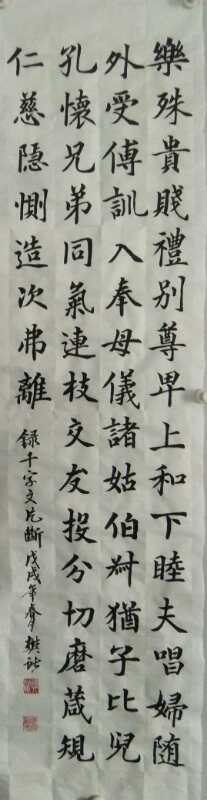 樂殊貴賤禮別尊卑上和下睦夫唱婦随
外受傅訓入奉母儀諸姑伯叔猶子比兒
孔懷兄弟同氣連枝交友投分切磨葴規
仁慈隐惻造次弗離
録千字文片斷戊戌年春